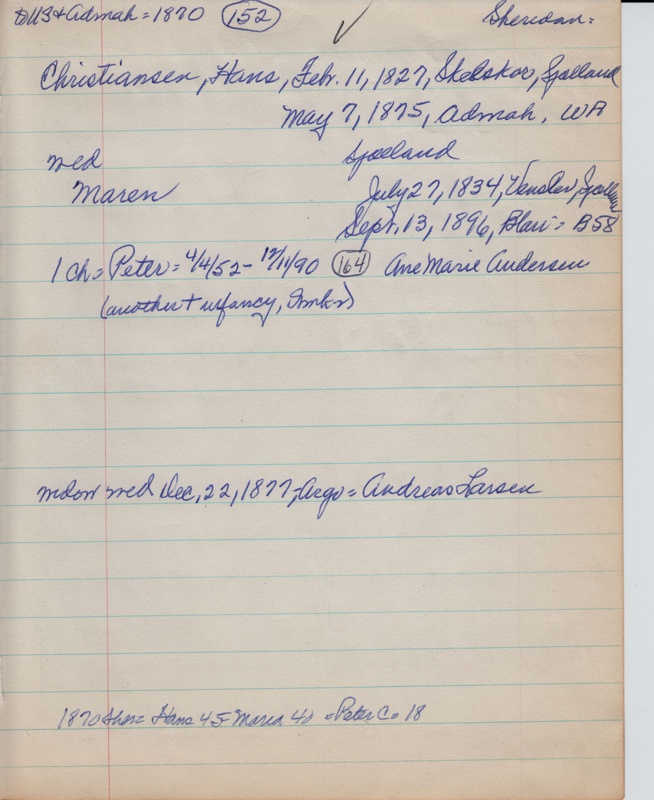 DUS & Admah = 1870 (152) Sheridan =
Christiansen, Hans, Feb. 11, 1827, Skelskor, Sjoelland
May 7, 1875, Admah, WA
wed Sjoelland
Maren July 27, 1834, Venslev, Sjoelland
Sept. 13, 1896, Blair = B58
1 ch = Peter = 4/4/52 - 12/11/90 (164) Ane Marie Andersen
(another + infancy, )
wed Dec, 22, 1877, Argo = Andreas Larsen
1870 Sher = Hans 45 Maria 40 = Peter C = 18